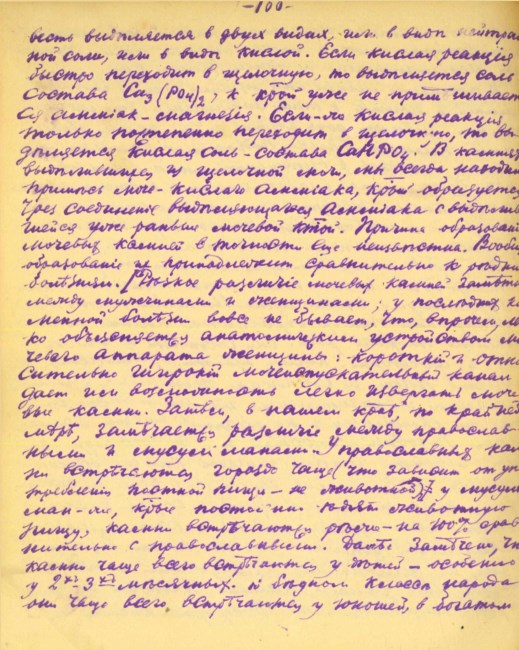 -100-
весть выдѣляется в двух видах, или в видѣ нейтраль
ной соли, или в видѣ кислой. Если кислая реакція
быстро переходит в щелочную, то выдѣляется соль
состава Ca3(PO4)2, к крой уже не примѣшивает
ся амміак-магнезія. Если-ло кислая реакція
только постепенно переходит в щелочную, то вы
дѣляется кислая соль-состава CaHPO4. В камнях
выдѣлившихся из щелочной мочи, мы всегда находим
примѣсь моче-кислаго амміака, крый образуется
чрез соединеніе выдѣляющагося амміака с выдѣлив
шейся уже раньше мочевой ктой. Причина образован
мочевых камней в точности еще неизвѣстна. Вообще
образованіе не принадлежит сравнительно к рѣдким
болѣзням. Рѣзкое различіе мочевых камней замѣтно
между мужчинами и женщинами; у послѣдних ка
менной болѣзни вовсе не бывает, что, впрочем, лег
ко объясняется анатомическим устройством мо
чевого аппарата женщины: короткій и отно
сительно широкій мочеиспускательный канал
дает им возможность легко извергать моче
вые камни. Затѣм, в нашем краѣ, по крайней
мѣрѣ, замѣчается различіе между православ-
ными и мусульманами. У православных кам
ни встрѣчаются гораздо чаще (что зависит от упо
требленія постной пищи - не животной), у мусуль
ман-же, крые постоянно ѣдят животную
пищу, камни встрѣчаются рѣдко - на 100% срав
нительно с православными. Далѣе замѣчено, что
камни чаще всего встрѣчаются у дѣтей - особенно
у 2х-3х мѣсячных. В бѣдном классѣ народа
они чаще всего встрѣчаются у юношей, в богатом